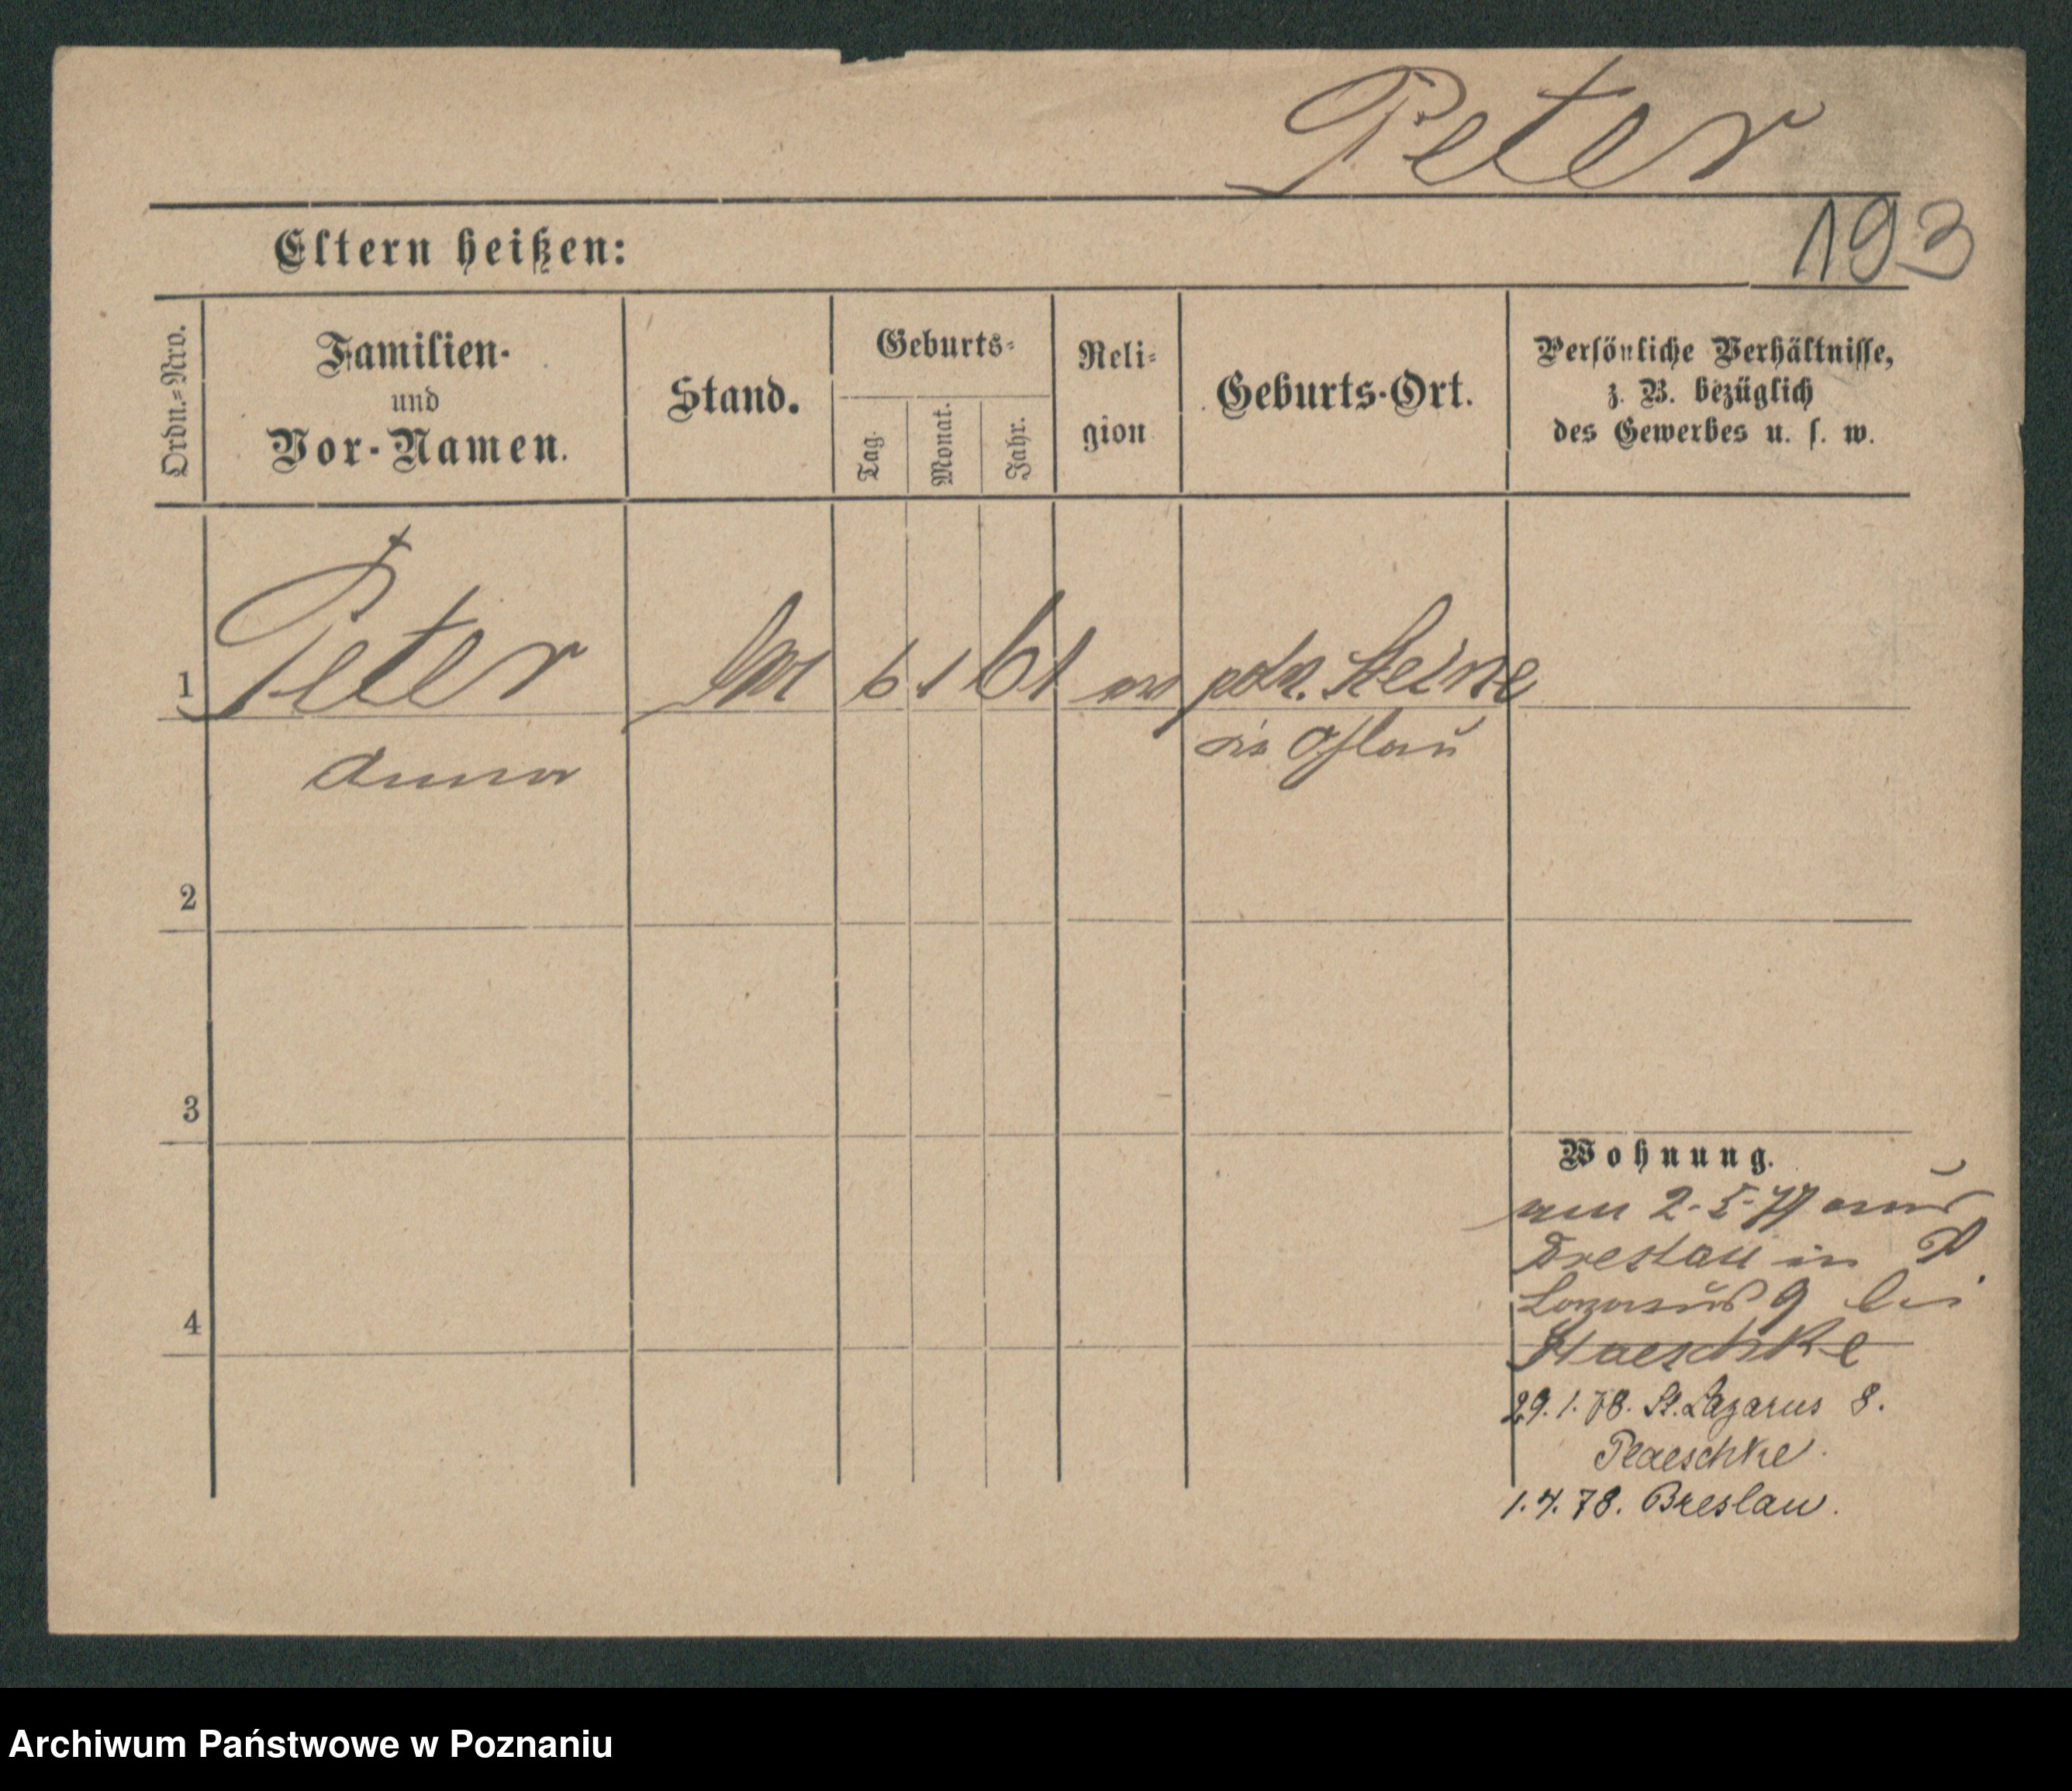 Peter
193
Eltern heißen:
Ordn.=Nro.
Familien-
und
Vor-Namen.
Stand.
Geburts-
Tag.
Monat.
Jahr.
Reli-
gion
Geburts-Ort.
Persönliche Verhältnisse,
z. B. bezüglich
des Gewerbes u. s. w.
1 Peter 6 1 61 Steine
Anna Ohlau
2
3
4
Wohnung.
am 2. 5. 77 aus
Breslau in P.
Lazarus 9 bei
29. 1. 78. St. Lazarus 8.
Plaeschke.
1. 4. 78. Breslau.
Archiwum Państwowe w Poznaniu